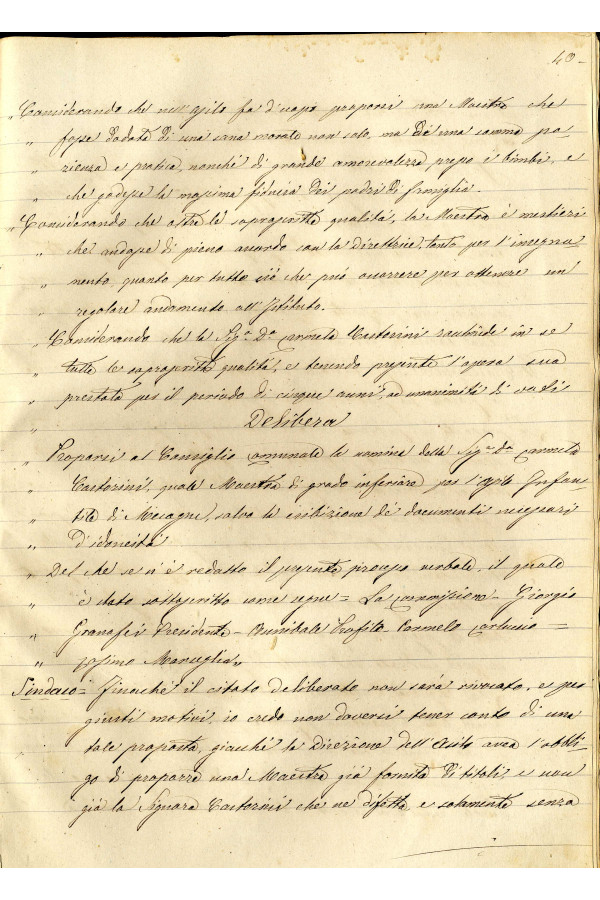 40-
„ Considerando che nell'Asilo fa d'uopo proporsi una Maestra che
„ fosse dotata di una sana morale non solo, ma di una somma pa-
„ zienza e pratica, nonché di grande amorevolezza presso i bimbi, e
„ che godesse la massima fiducia dei padri di famiglia.
„ Considerando che oltre le soprascritte qualità, la Maestra è mestieri
„ che andasse di pieno accordo con la Direttrice, tanto per l'insegna-
„ mento, quanto per tutto ciò che può occorrere per ottenere un
„ regolare andamento all'Istituto.
„ Considerando che la Sig.a D.a Carmela Castorini racchiude in se
„ tutte le soprascritte qualità, e tenendo presente l'opera sua
„ prestata per il periodo di cinque anni, ad unanimità di voti
„ Delibera
„ Proporsi al Consiglio comunale la nomina della Sig.a D.a Carmela
„ Castorini, quale Maestra di grado inferiore per l'Asilo Infan-
„ tile di Mesagne, salvo la esibizione de' documenti necessari
„ d'idoneità
„ Del che se n'è redatto il presente processo verbale, il quale
„ è stato sottoscritto come segue = La Commissione - Giorgio
„ Granafei Presidente - Annibale Profilo - Carmelo =
„ Maruglia„
Sindaco = Finochè il citato deliberato non sarà rivocato, e per
giusti motivi, io credo non doversi tener conto di una
tale proposta, giacchè la Direzione dell'Asilo avea l'obbli-
go di proporre una Maestra già fornita di titoli e non
già la Signora Castorini che ne difetta, e solamente senza